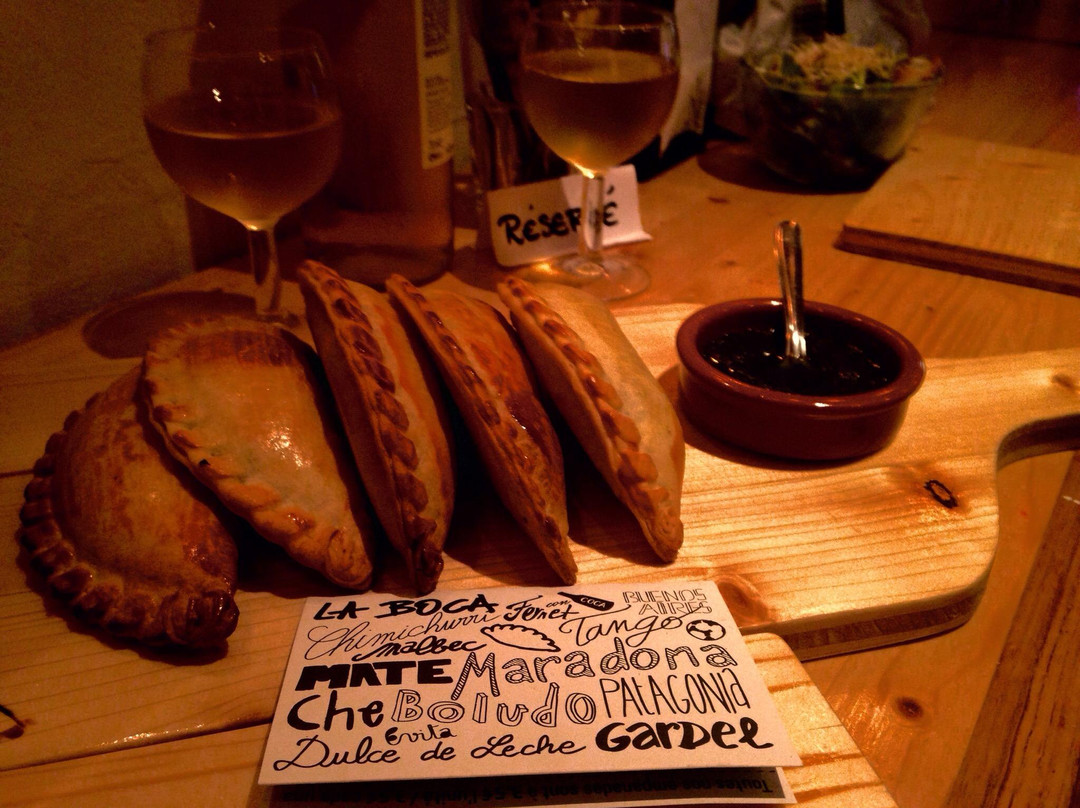 RÉSERVÉ
LA BOCA Fernet con COCA BUENOS AIRES
Chimichurri malbec Tango
MATE Maradona
Che Boludo PATAGONIA
Evita
Dulce de Leche GARDEL
Toutes nos empanadas sont à